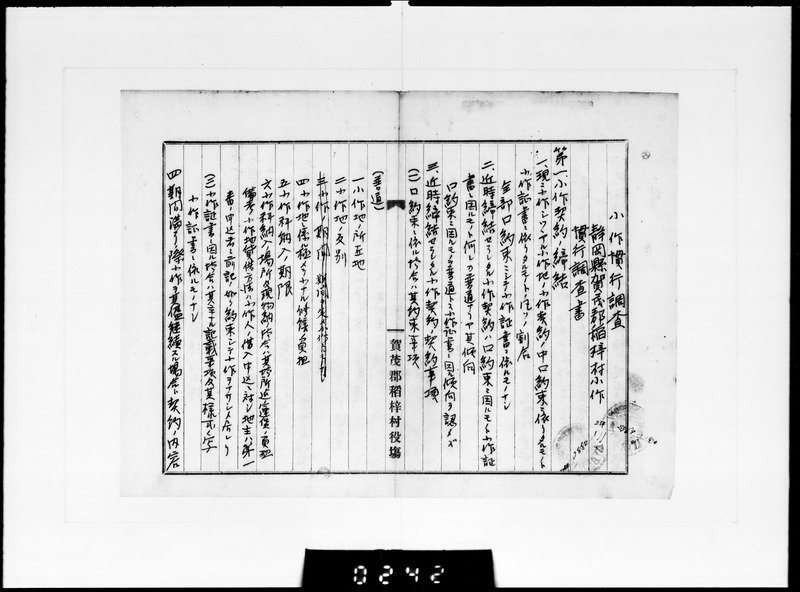 小作慣行調査
静岡縣賀茂郡稲梓村小作
慣行調査書
第一、小作契約ノ締結
一、現ニ小作シツヽアル小作地ノ小作契約中口約束ニ依リタルモノト
小作証書ニ依リタルモノトノ割合
全部口約束ニシテ小作証書ニ依ルモノナシ
二、近時締結セラレタル小作契約ハ口約束ニ因ルモノト小作証
書ニ因ルモノト何レカ普通ナリヤ其傾向
口約束ニ因ルモノヲ普通トシ小作証書ニ因ル傾向ヲ認メズ
三、近時締結セラレタル小作契約ノ契約事項
(一)口約束ニ依ル場合ハ其約束事項
(普通)
一 小作地ノ所在地
二 小作地ノ反別
三 小作ノ期間
四 小作地ノ修繕ノ負担
五 小作料納入ノ期限
六 小作料納入ノ場所
備考 小作地賃借方法ハ小作人ノ借入申込ニ対シ地主ハ第一
(二)小作証書ニ因ル場合ハ其主ナル記載事項及其様式ノ写
小作証書ニ依ルモノナシ
四 期間満了ノ際小作ヲ其儘継続スル場合ト契約ノ内容
賀茂郡稲梓村役場
0242